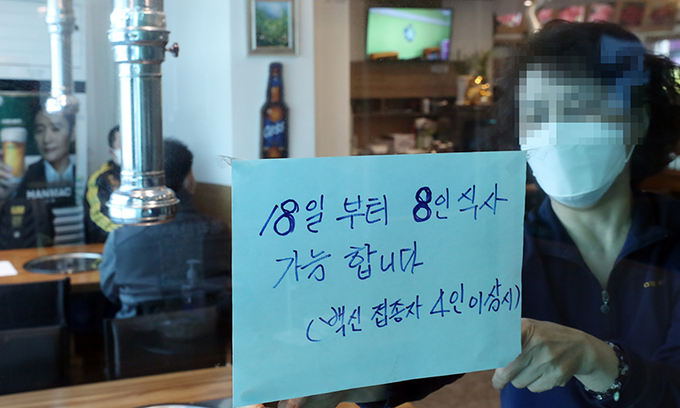 18일 부터 8인 식사
가능 합니다
(백신 접종자 4인 이상시)
HANMAC